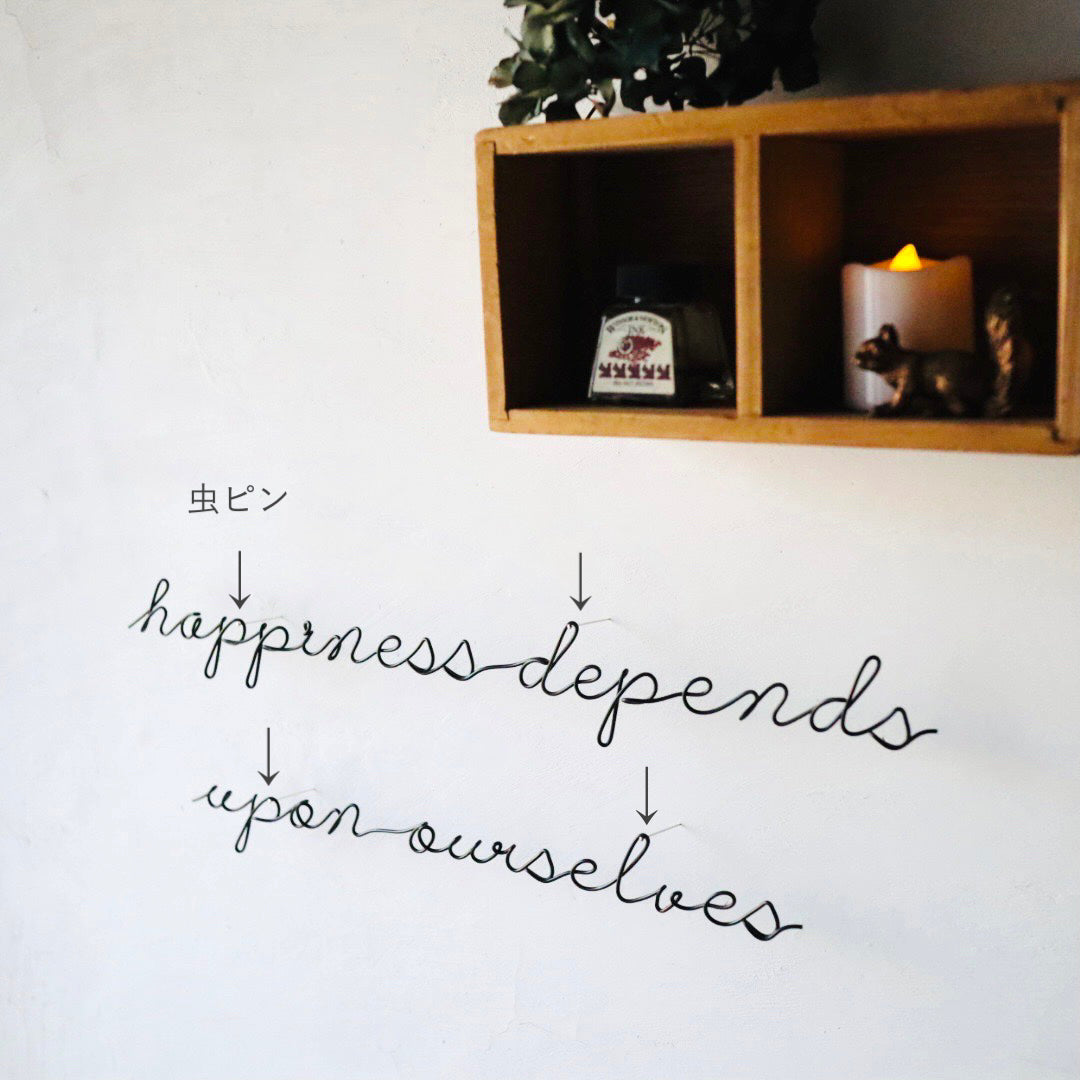 WINSOR & NEWTON
INK
虫ピン
happiness depends
upon ourselves